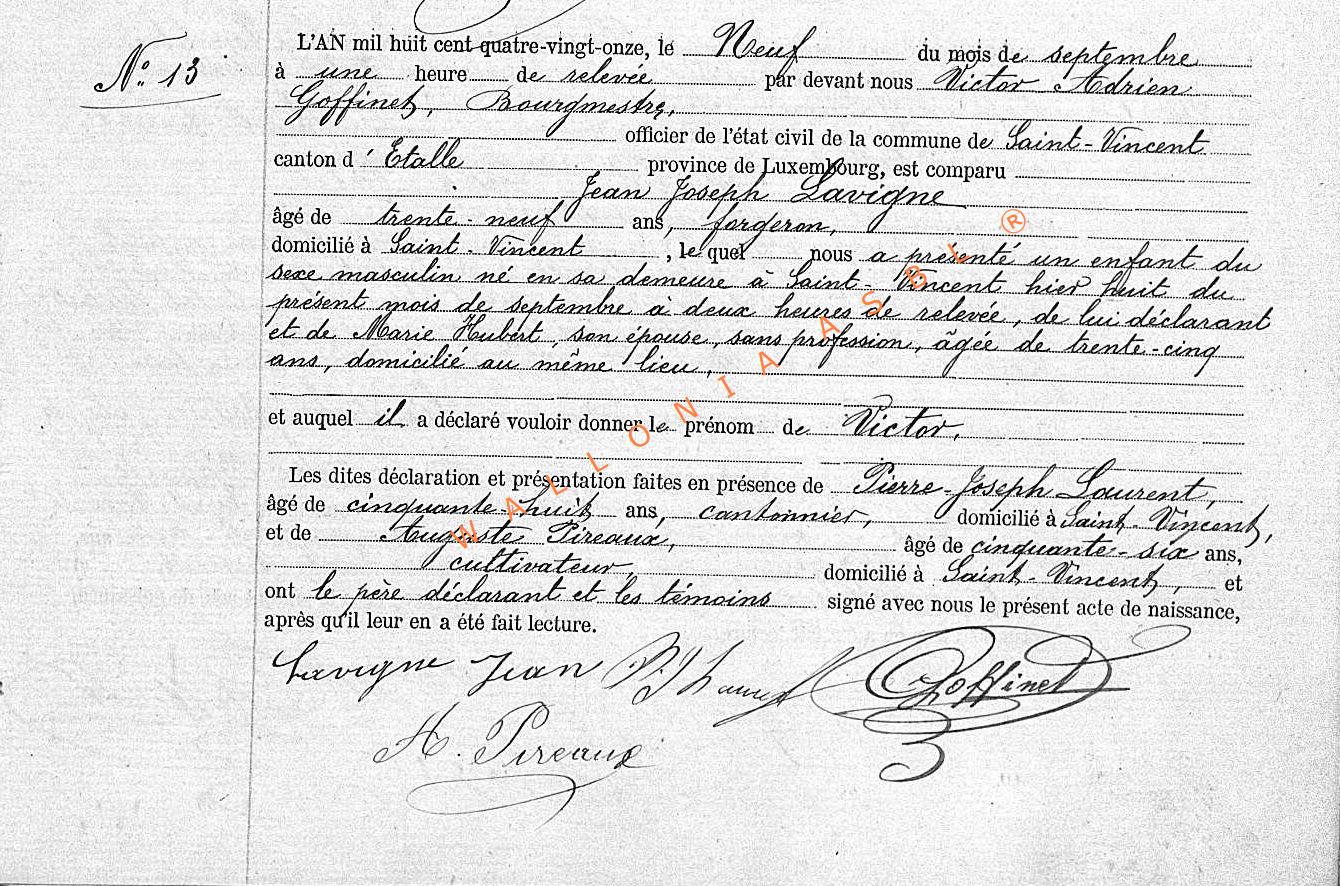 N° 13
L'AN mil huit cent quatre-vingt-onze, le Neuf du mois de septembre
à une heure de relevée par devant nous Victor Adrien
Goffinet, Bourgmestre,
officier de l'état civil de la commune de Saint-Vincent
canton d'Etalle province de Luxembourg, est comparu
Jean Joseph Lavigne
âgé de trente-neuf ans, forgeron,
domicilié à Saint-Vincent, le quel nous a présenté un enfant du
sexe masculin né en sa demeure à Saint-Vincent hier huit du
présent mois de septembre à deux heures de relevée, de lui déclarant
et de Marie Hubert, son épouse, sans profession, âgée de trente-cinq
ans, domicilié au même lieu,
et auquel il a déclaré vouloir donner le prénom de Victor.
Les dites déclaration et présentation faites en présence de Pierre-Joseph Laurent,
âgé de cinquante-huit ans, cantonnier, domicilié à Saint-Vincent,
et de Auguste Pireaux, âgé de cinquante-six ans,
cultivateur, domicilié à Saint-Vincent, et
ont le père déclarant et les témoins signé avec nous le présent acte de naissance,
après qu'il leur en a été fait lecture.
Lavigne Jean P J Laurent Goffinet
A. Pireaux
WALLONIA ASBL ®